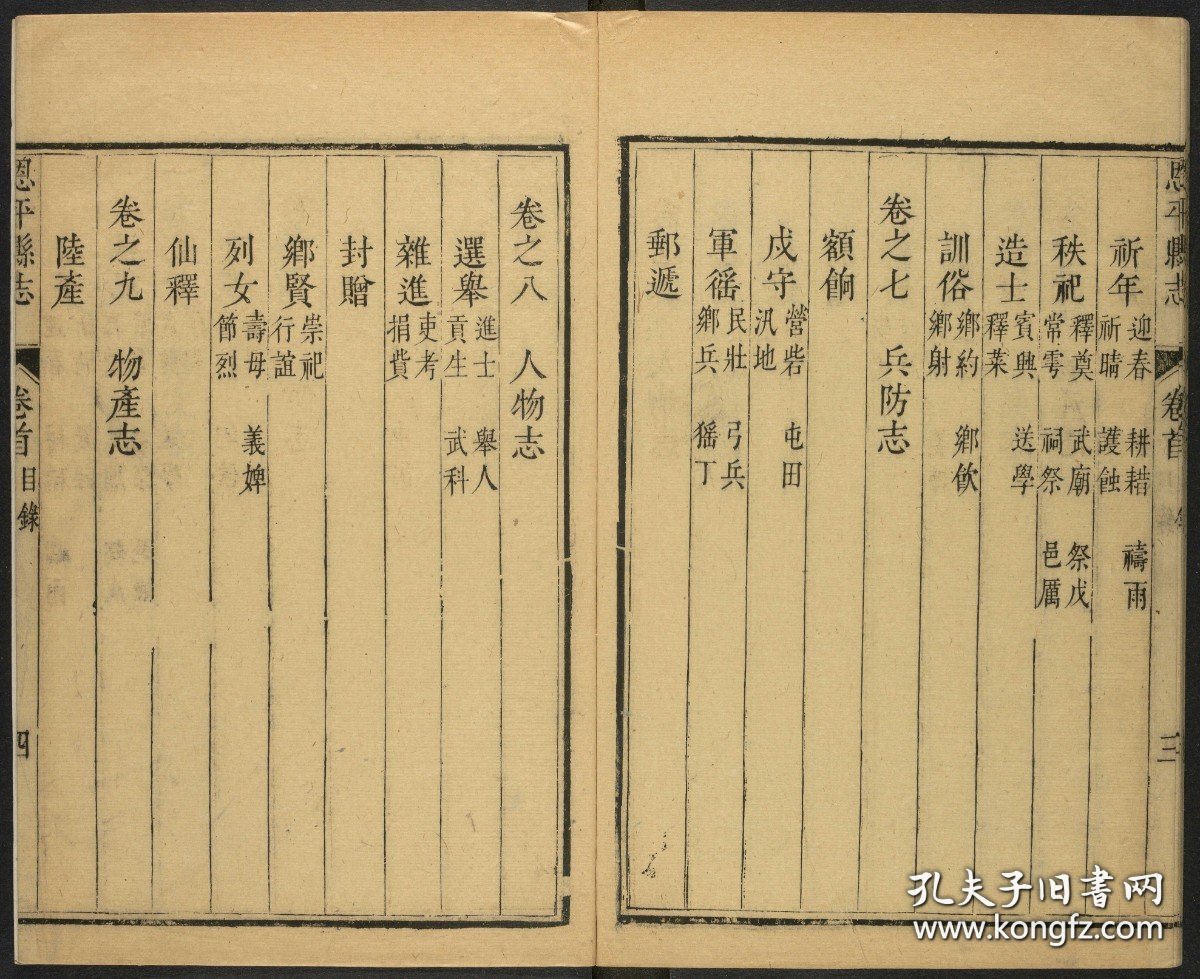 恩平縣志 卷首 三
祈年 迎春 耕耤 禱雨 祈晴 護蝕
秩祀 釋奠 武廟 祭戊 常雩 祠祭 邑厲
造士 賓興 送學 釋菜
訓俗 鄉約 鄉飲 鄉射
卷之七 兵防志
額餉
戍守 營砦 屯田 汛地
軍徭 民壯 弓兵 鄉兵 猺丁
郵遞
卷之八 人物志
選舉 進士 舉人 貢生 武科
雜進 吏考 捐貲
封贈
鄉賢 崇祀 行誼
列女 壽母 義婢 節烈
仙釋
卷之九 物產志
陸產
恩平縣志 卷首 目錄 四
孔夫子旧书网
www.kongfz.com